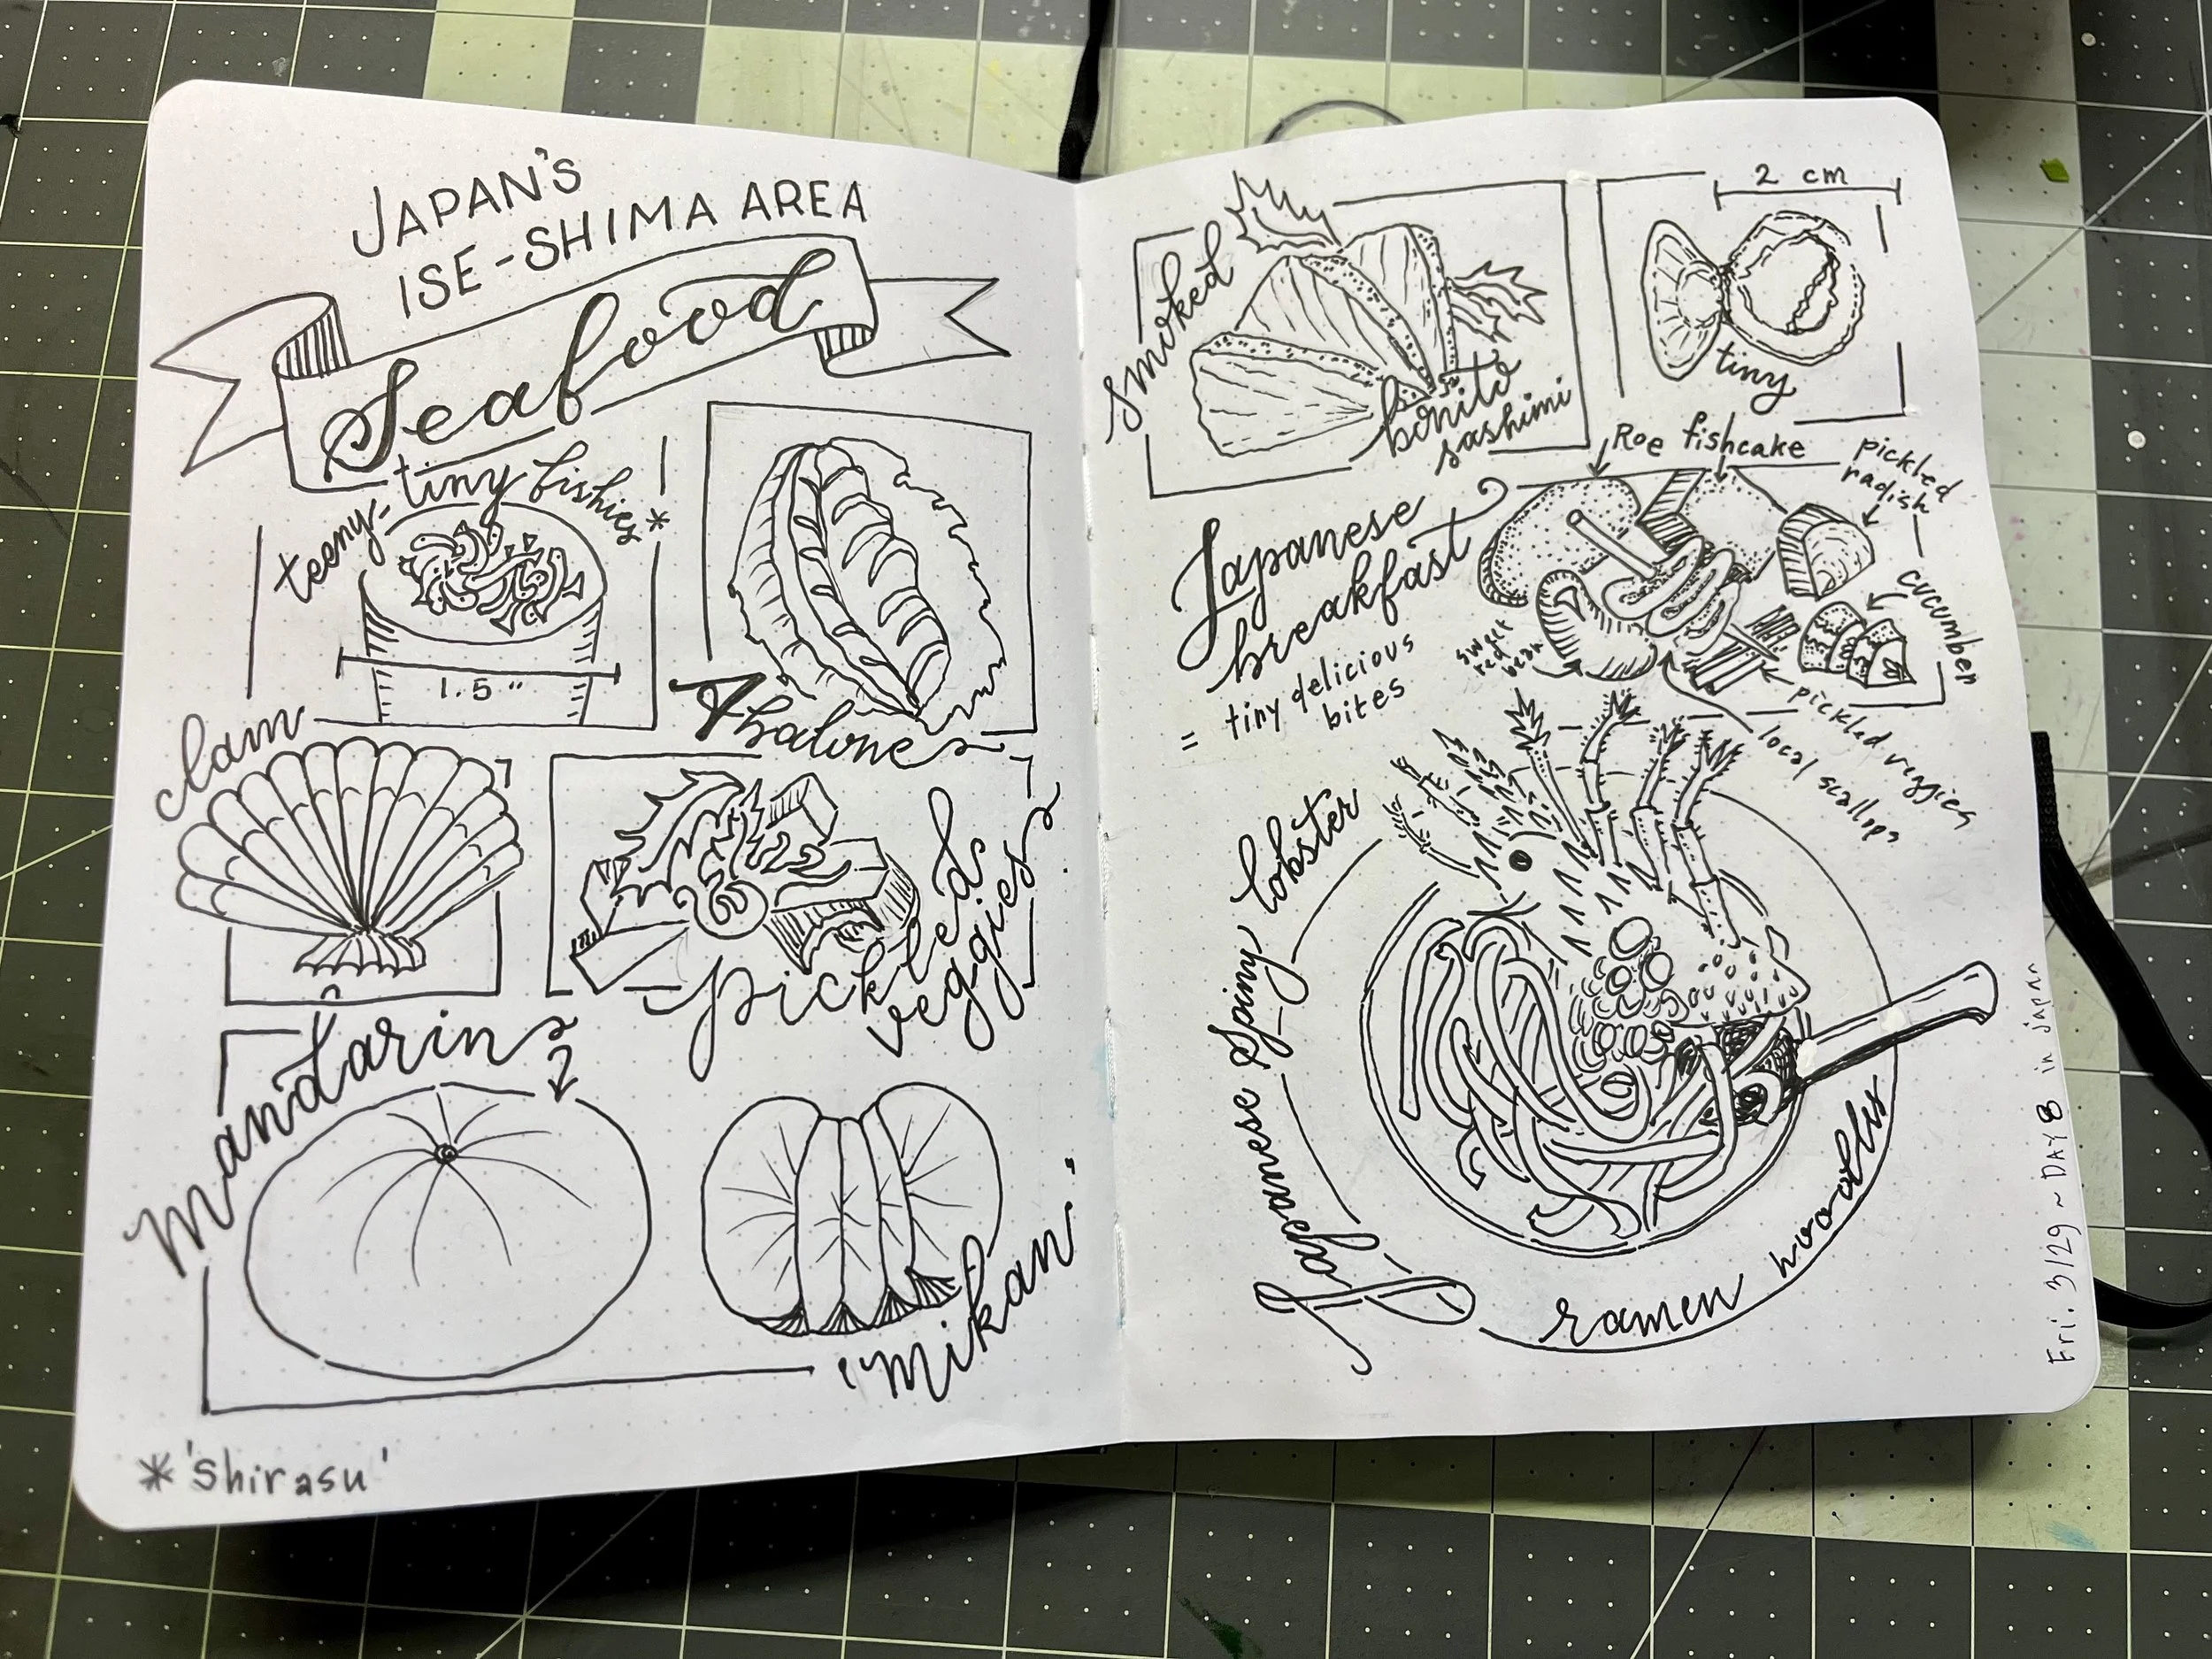 JAPAN'S
ISE-SHIMA AREA
Seafood
teeny-tiny fishies*
1.5"
Abalone
clam
pickled
veggies
mandarin
"mikan"
*'shirasu'
smoked
bonito
sashimi
2 cm
tiny
Japanese
breakfast
= tiny delicious
bites
Roe
fishcake
pickled
radish
cucumber
sweet
red
bean
pickled veggies
local scallops
Japanese Spiny lobster
ramen noodles
Fri. 3/29 ~ DAY 8 in japan